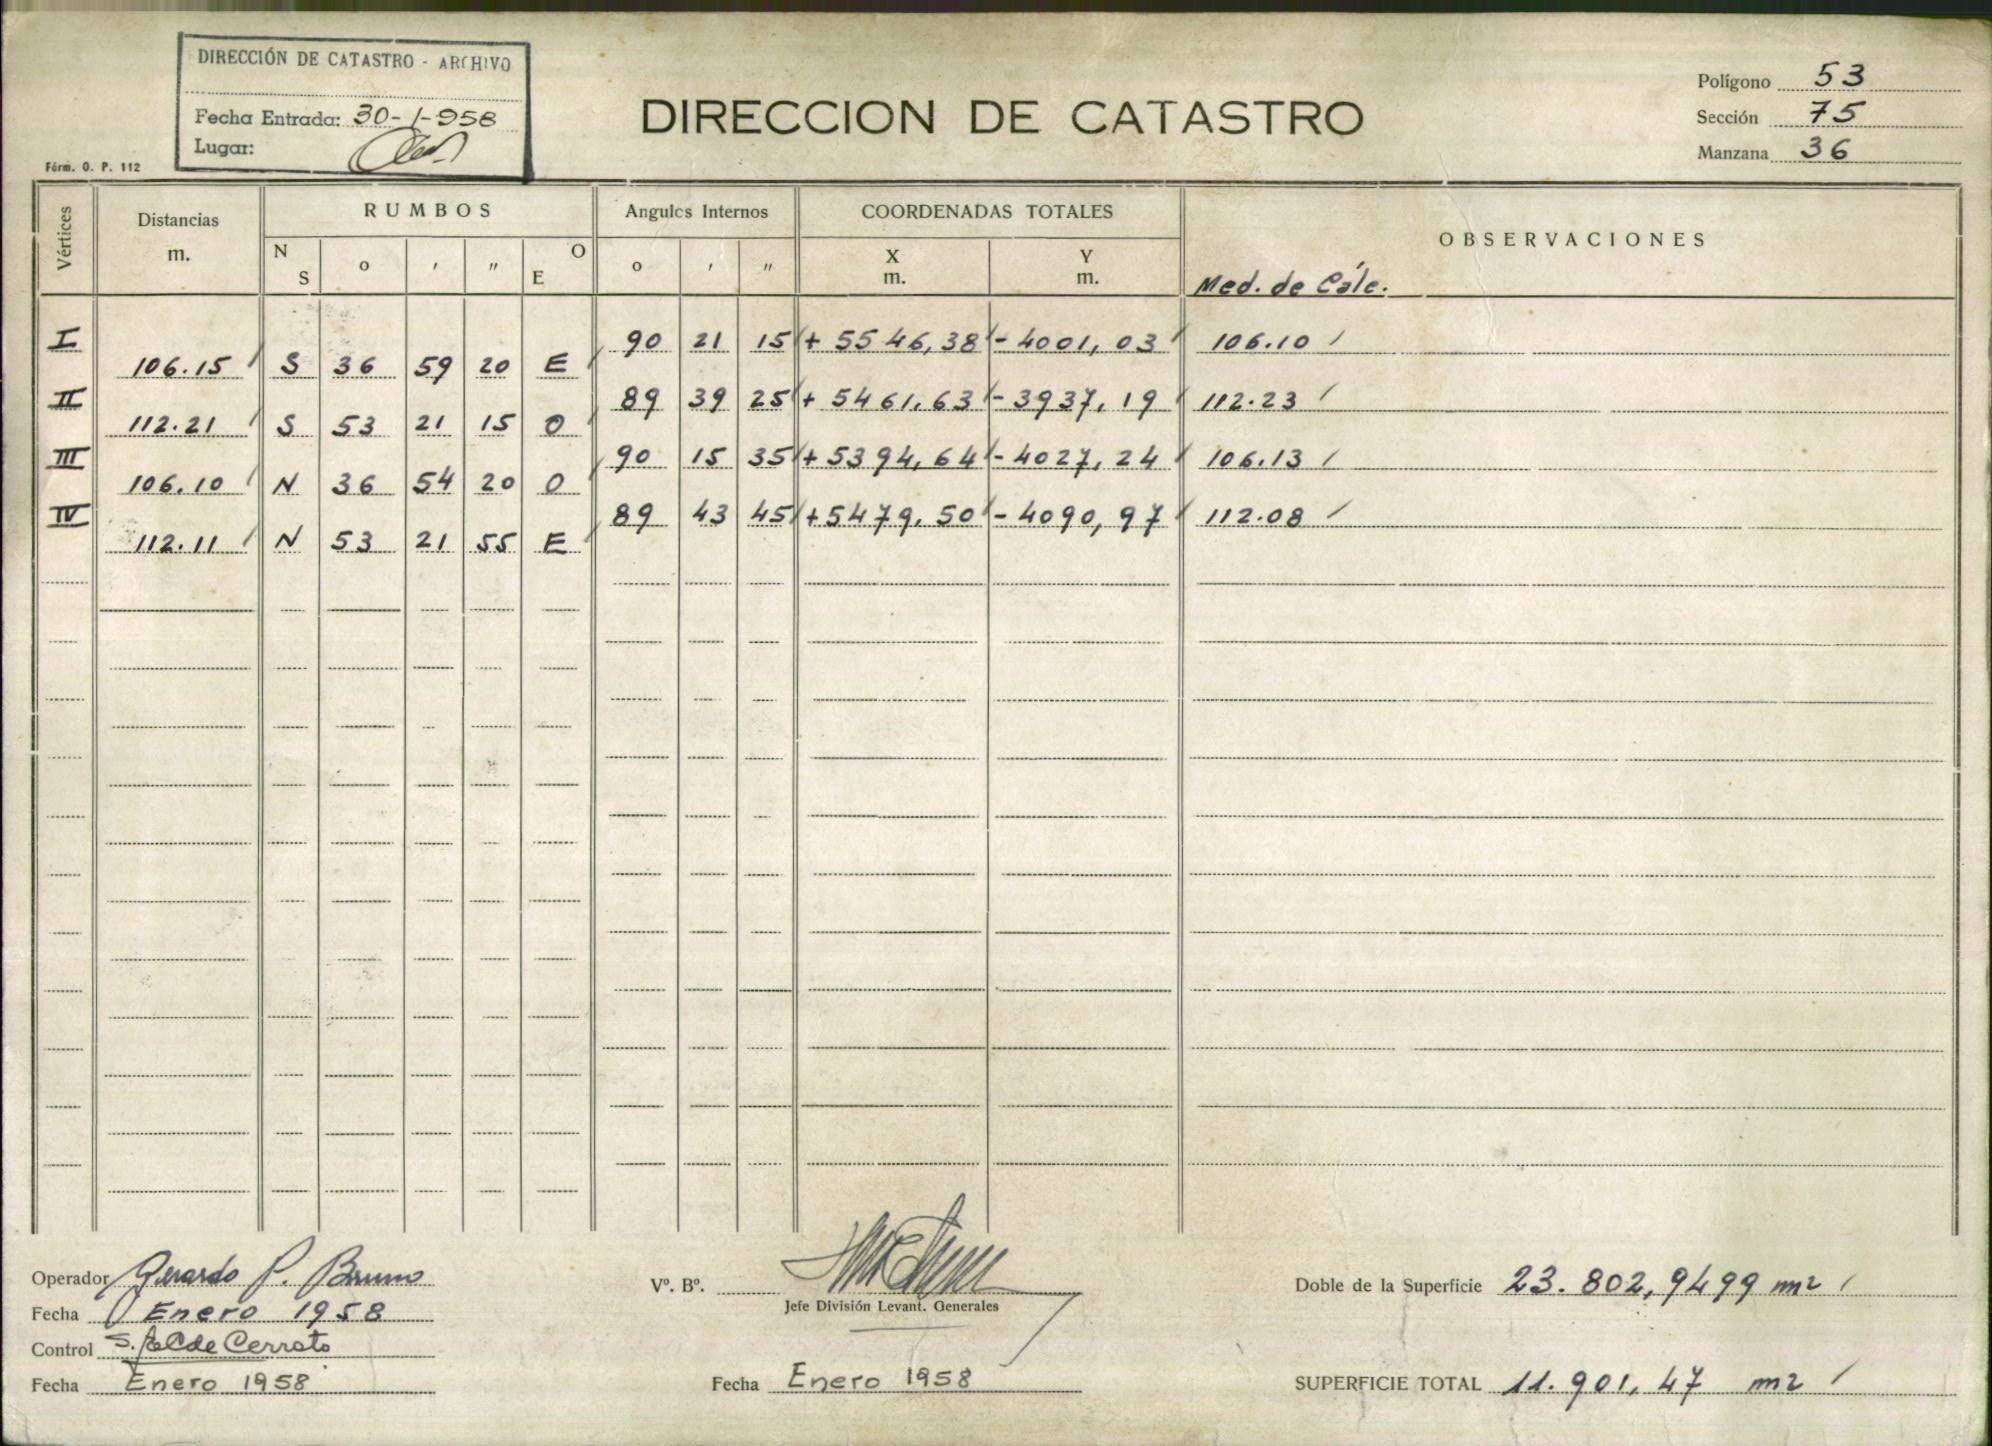 DIRECCIÓN DE CATASTRO - ARCHIVO
Fecha Entrada: 30-1-958
Lugar:
Fórm. O. P. 112
DIRECCION DE CATASTRO
Polígono 53
Sección 75
Manzana 36
Vértices
Distancias m.
RUMBOS
N S o ' " E O
Angulos Internos
o ' "
COORDENADAS TOTALES
X m. Y m.
OBSERVACIONES
Med. de Cálc.
I 90 21 15 + 5546,38 - 4001,03 106.10
106.15 S 36 59 20 E
II 89 39 25 + 5461,63 - 3937,19 112.23
112.21 S 53 21 15 O
III 90 15 35 + 5394,64 - 4027,24 106.13
106.10 N 36 54 20 O
IV 89 43 45 + 5479,50 - 4090,97 112.08
112.11 N 53 21 55 E
Operador Gerardo P. Bruno
Fecha Enero 1958
Control S. de Cerrato
Fecha Enero 1958
Vº. Bº.
Jefe División Levant. Generales
Fecha Enero 1958
Doble de la Superficie 23.802,9499 m2
SUPERFICIE TOTAL 11.901,47 m2